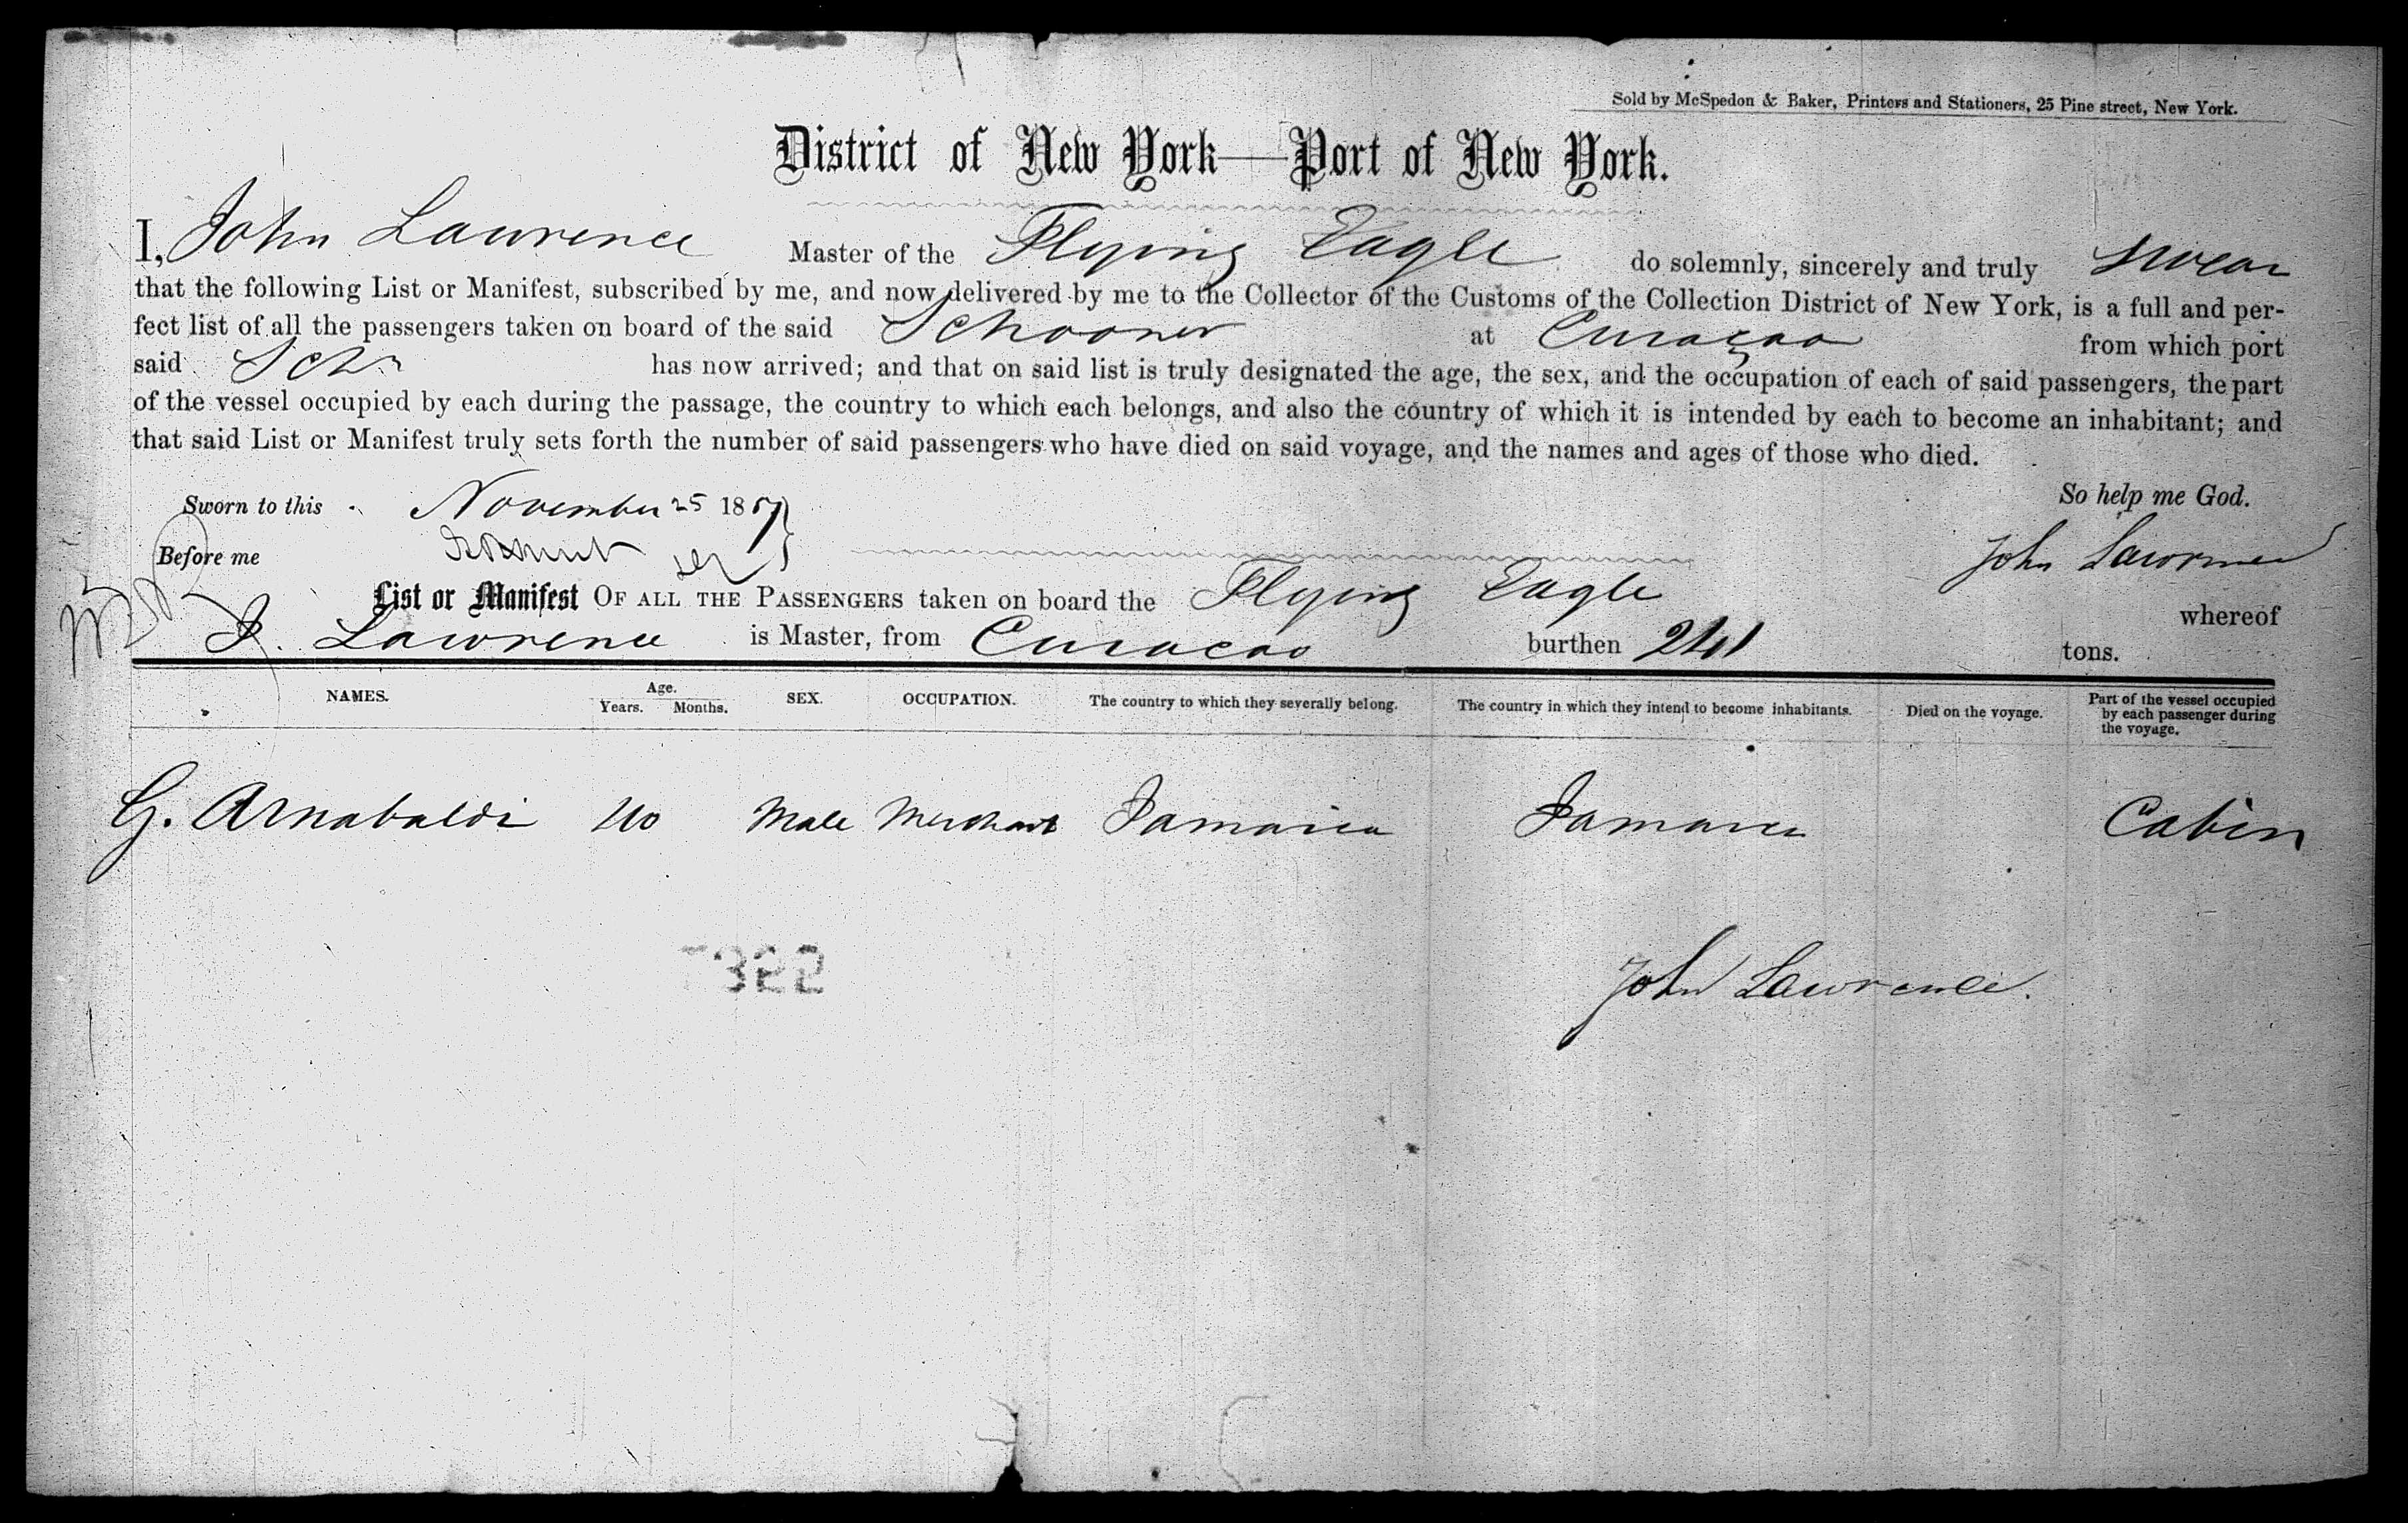 Sold by McSpedon & Baker, Printers and Stationers, 25 Pine street, New York.
District of New York—Port of New York.
I, John Lawrence Master of the Flying Eagle do solemnly, sincerely and truly swear
that the following List or Manifest, subscribed by me, and now delivered by me to the Collector of the Customs of the Collection District of New York, is a full and per-
fect list of all the passengers taken on board of the said Schooner at Curaçao from which port
said Schr has now arrived; and that on said list is truly designated the age, the sex, and the occupation of each of said passengers, the part
of the vessel occupied by each during the passage, the country to which each belongs, and also the country of which it is intended by each to become an inhabitant; and
that said List or Manifest truly sets forth the number of said passengers who have died on said voyage, and the names and ages of those who died.
Sworn to this November 25 1857 So help me God.
Before me John Lawrence
List or Manifest OF ALL THE PASSENGERS taken on board the Flying Eagle whereof
J. Lawrence is Master, from Curacao burthen 241 tons.
NAMES. Age. Years. Months. SEX. OCCUPATION. The country to which they severally belong. The country in which they intend to become inhabitants. Died on the voyage. Part of the vessel occupied by each passenger during the voyage.
G. Arnabaldi 40 Male Merchant Jamaica Jamaica Cabin
1322
John Lawrence.